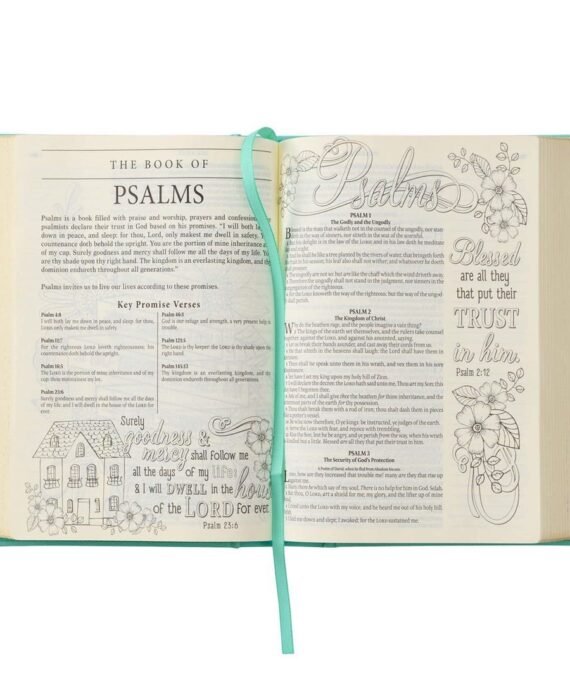 THE BOOK OF
PSALMS
Psalms is a book filled with praise and worship, prayers and confession
psalmists declare their trust in God based on his promises. "I will both
down in peace, and sleep: for thou, Lord, only makest me dwell in safety. Y
countenance doth behold the upright. You are the portion of mine inheritance
of my cup. Surely goodness and mercy shall follow me all the days of my life. You
are the shade upon thy right hand. The kingdom is an everlasting kingdom, and the
dominion endureth throughout all generations."
Psalms invites us to live our lives according to these promises.
Key Promise Verses
Psalm 4:8
I will both lay me down in peace, and sleep: for thou,
LORD, only makest me dwell in safety.
Psalm 11:7
For the righteous LORD loveth righteousness; his
countenance doth behold the upright.
Psalm 16:5
The LORD is the portion of mine inheritance and of my
cup: thou maintainest my lot.
Psalm 23:6
Surely goodness and mercy shall follow me all the days
of my life: and I will dwell in the house of the LORD for
ever.
Psalm 46:1
God is our refuge and strength, a very present help in
trouble.
Psalm 121:5
The LORD is thy keeper: the LORD is thy shade upon thy
right hand.
Kingdom is an everlasting kingdom, and thy
dominion endureth throughout all generations.
Surely
goodness &
mercy shall Follow me
all the days of my life:
& I will DWELL in the house
of the LORD for ever
Psalm 23:6
Psalms
PSALM 1
The Godly and the Ungodly
Blessed is the man that walketh not in the counsel of the ungodly, nor
in the way of sinners, nor sitteth in the seat of the scornful.
his delight is in the law of the LORD; and in his law doth he meditate
and night.
he shall be like a tree planted by the rivers of water, that bringeth forth
his fruit in his season; his leaf also shall not wither; and whatsoever he doeth
prosper.
The ungodly are not so: but are like the chaff which the wind driveth away.
Therefore the ungodly shall not stand in the judgment, nor sinners in
the congregation of the righteous.
For the LORD knoweth the way of the righteous: but the way of the ungodly
shall perish.
PSALM 2
The Kingdom of Christ
Why do the heathen rage, and the people imagine a vain thing?
The kings of the earth set themselves, and the rulers take counsel
together, against the LORD, and against his anointed, saying,
Let us break their bands asunder, and cast away their cords from us.
He that sitteth in the heavens shall laugh: the Lord shall have them in
derision.
Then shall he speak unto them in his wrath, and vex them in his sore
displeasure.
Yet have I set my king upon my holy hill of Zion.
I will declare the decree: the LORD hath said unto me, Thou art my Son; this
day have I begotten thee.
Ask of me, and I shall give thee the heathen for thine inheritance, and the
uttermost parts of the earth for thy possession.
Thou shalt break them with a rod of iron; thou shalt dash them in pieces
like a potter's vessel.
Be wise now therefore, O ye kings: be instructed, ye judges of the earth.
Serve the LORD with fear, and rejoice with trembling.
Kiss the Son, lest he be angry, and ye perish from the way, when his wrath
is kindled but a little. Blessed are all they that put their trust in him.
PSALM 3
The Security of God's Protection
A Psalm of David, when he fled from Absalom his son.
LORD, how are they increased that trouble me! many are they that rise up
against me.
Many there be which say of my soul, There is no help for him in God. Selah.
But thou, O LORD, art a shield for me; my glory, and the lifter up of mine
head.
I cried unto the LORD with my voice, and he heard me out of his holy hill.
I laid me down and slept; I awaked; for the LORD sustained me.
Blessed
are all they
that put their
TRUST
in him.
Psalm 2:12